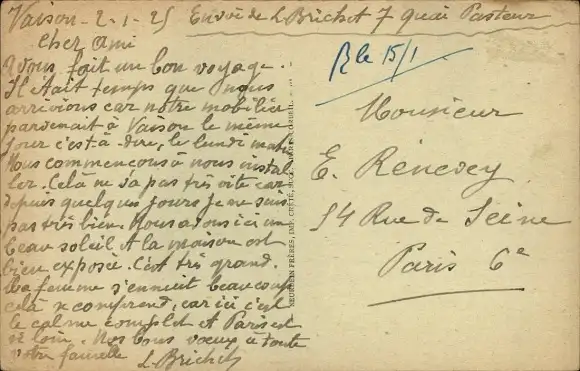 Vaison - 2-1-25 Envoi de L Brichet 7 quai Pasteur
Cher Ami
Avons fait un bon voyage.
Il était temps que nous
arrivions car notre mobilier
parvenait à Vaison le même
jour c'est-à-dire, le lundi matin
Nous commencons à nous instal
ler. Celà ne va pas très vite car
depuis quelques jours je ne suis
pas très bien. Nous avons ici un
beau soleil. A la maison est
bien exposée. C'est très grand.
Ma femme s'ennuit beaucoup
celà se comprend, car ici c'est
le calme complet et Paris est
si loin. Nos bons vœux à toute
votre famille L. Brichet
NEURDEIN FRÈRES, IMP. CRÉTÉ, CORBEIL
R le 15/1
Monsieur
E. Renevey
54 Rue de Seine
Paris 6e